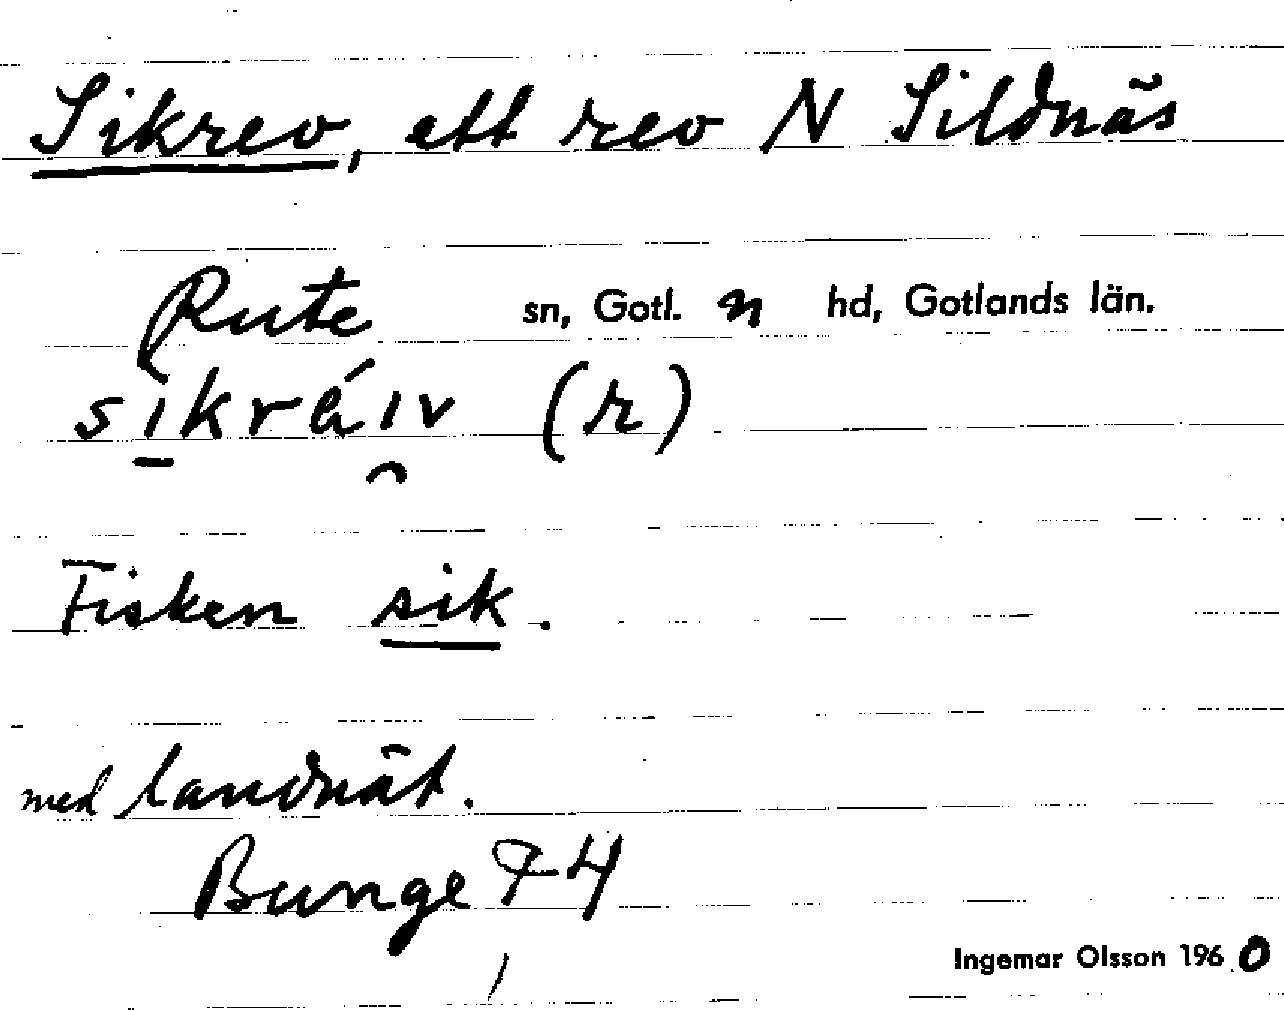 Sikrev, ett rev N Sildnäs
Rute sn, Gotl. n hd, Gotlands län.
sikráiv (r)
Fisken sik.
med landnät.
Bunge 74
Ingemar Olsson 1960